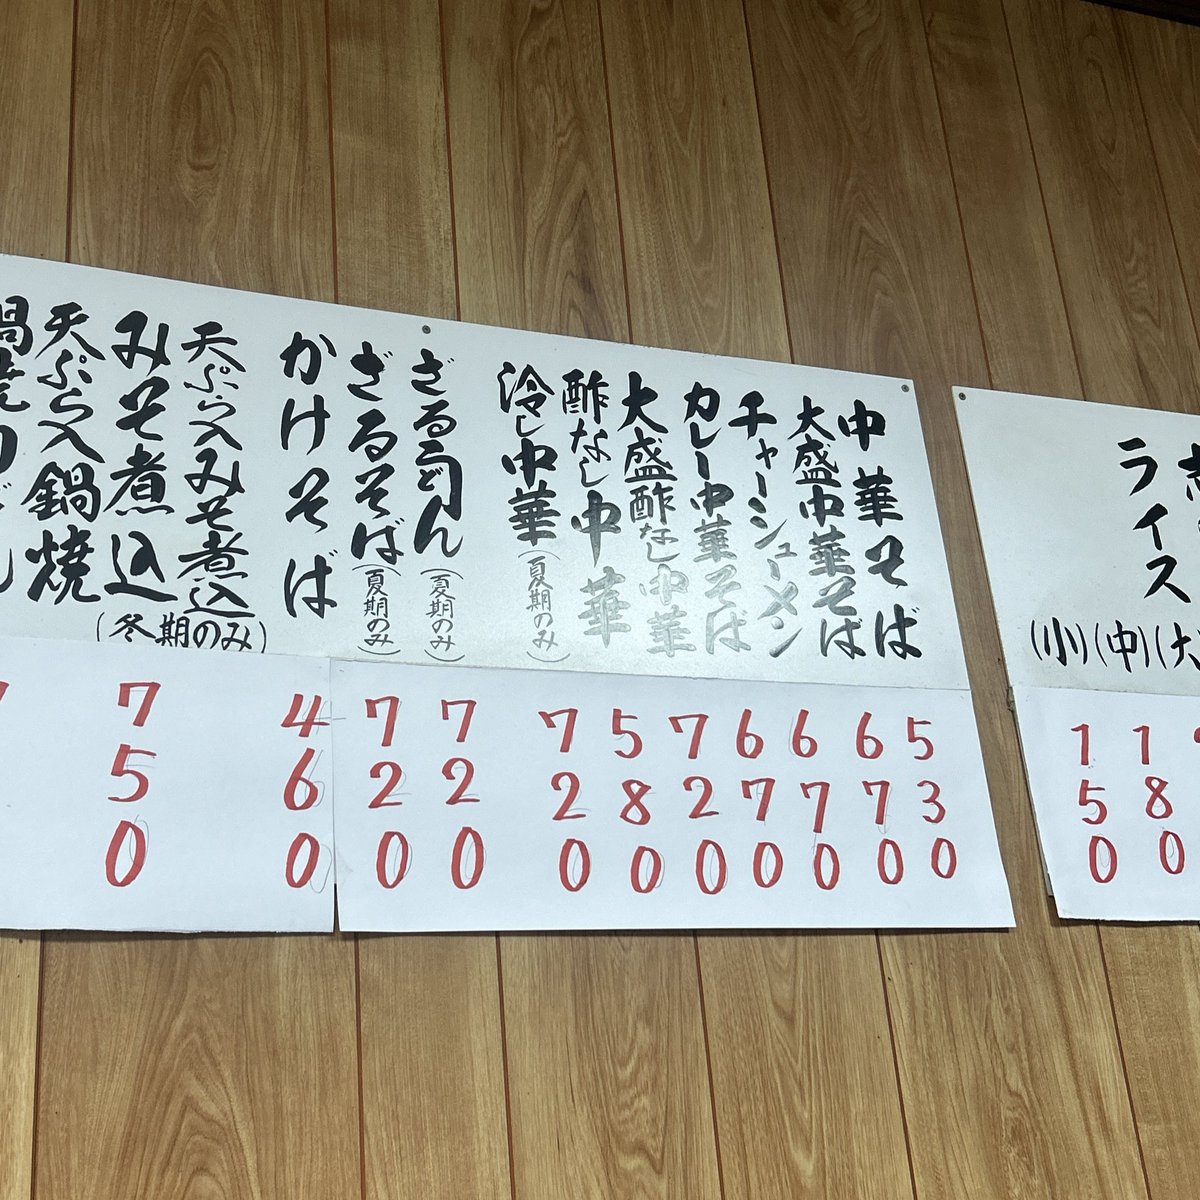 ライス
(大
(中)
(小)
180
150
中華そば
530
大盛中華そば
670
チャーシューメン
670
カレー中華そば
670
大盛酢なし中華
720
酢なし中華
580
冷し中華(夏期のみ)
720
ざるうどん(夏期のみ)
720
ざるそば(夏期のみ)
720
かけそば
460
天ぷら入みそ煮込
みそ煮込
(冬期のみ)
750
天ぷら入鍋焼